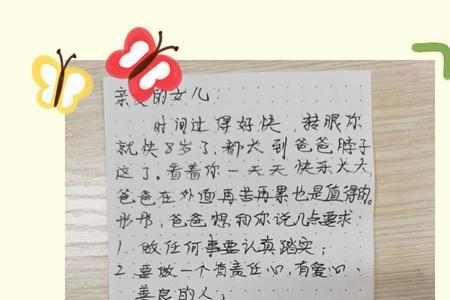 亲爱的女儿:
时间过得好快,转眼你
就快8岁了,都大到爸爸脖子
这了。看着你一天天快乐大大,
爸爸在外面再苦再累也是值得的。
彤彤,爸爸想和你说几点要求
1. 做任何事要认真踏实;
2 要做一个有责任心,有爱心、
善良的人;